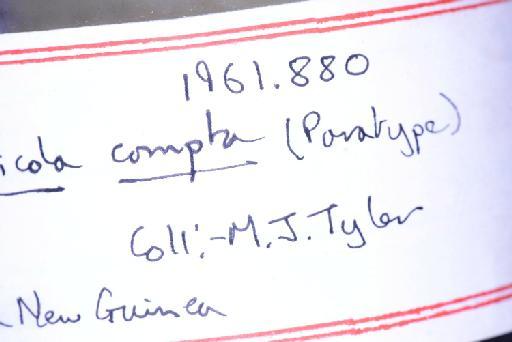 1961.880
icola compta (Paratype)
Coll:-M.J.Tyler
New Guinea